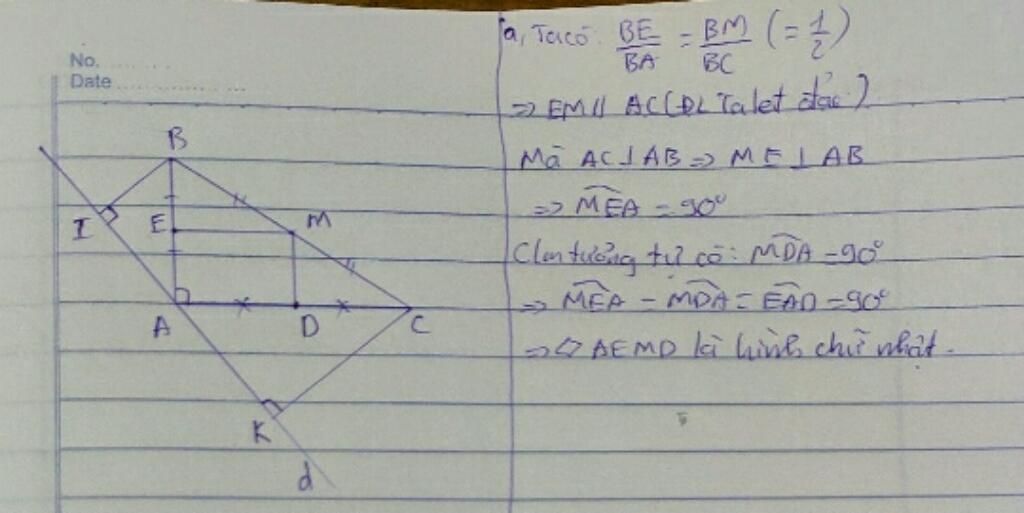 No.
Date
B
I
E
M
A
D
C
K
d
a, Ta có: BE/BA = BM/BC (= 1/2)
=> EM // AC (ĐL Talet đảo)
Mà AC ⊥ AB => ME ⊥ AB
=> MEA = 90°
Cm tưởng tự có: MDA = 90°
=> MEA = MDA = EAD = 90°
=> AEMD là hình chữ nhật.